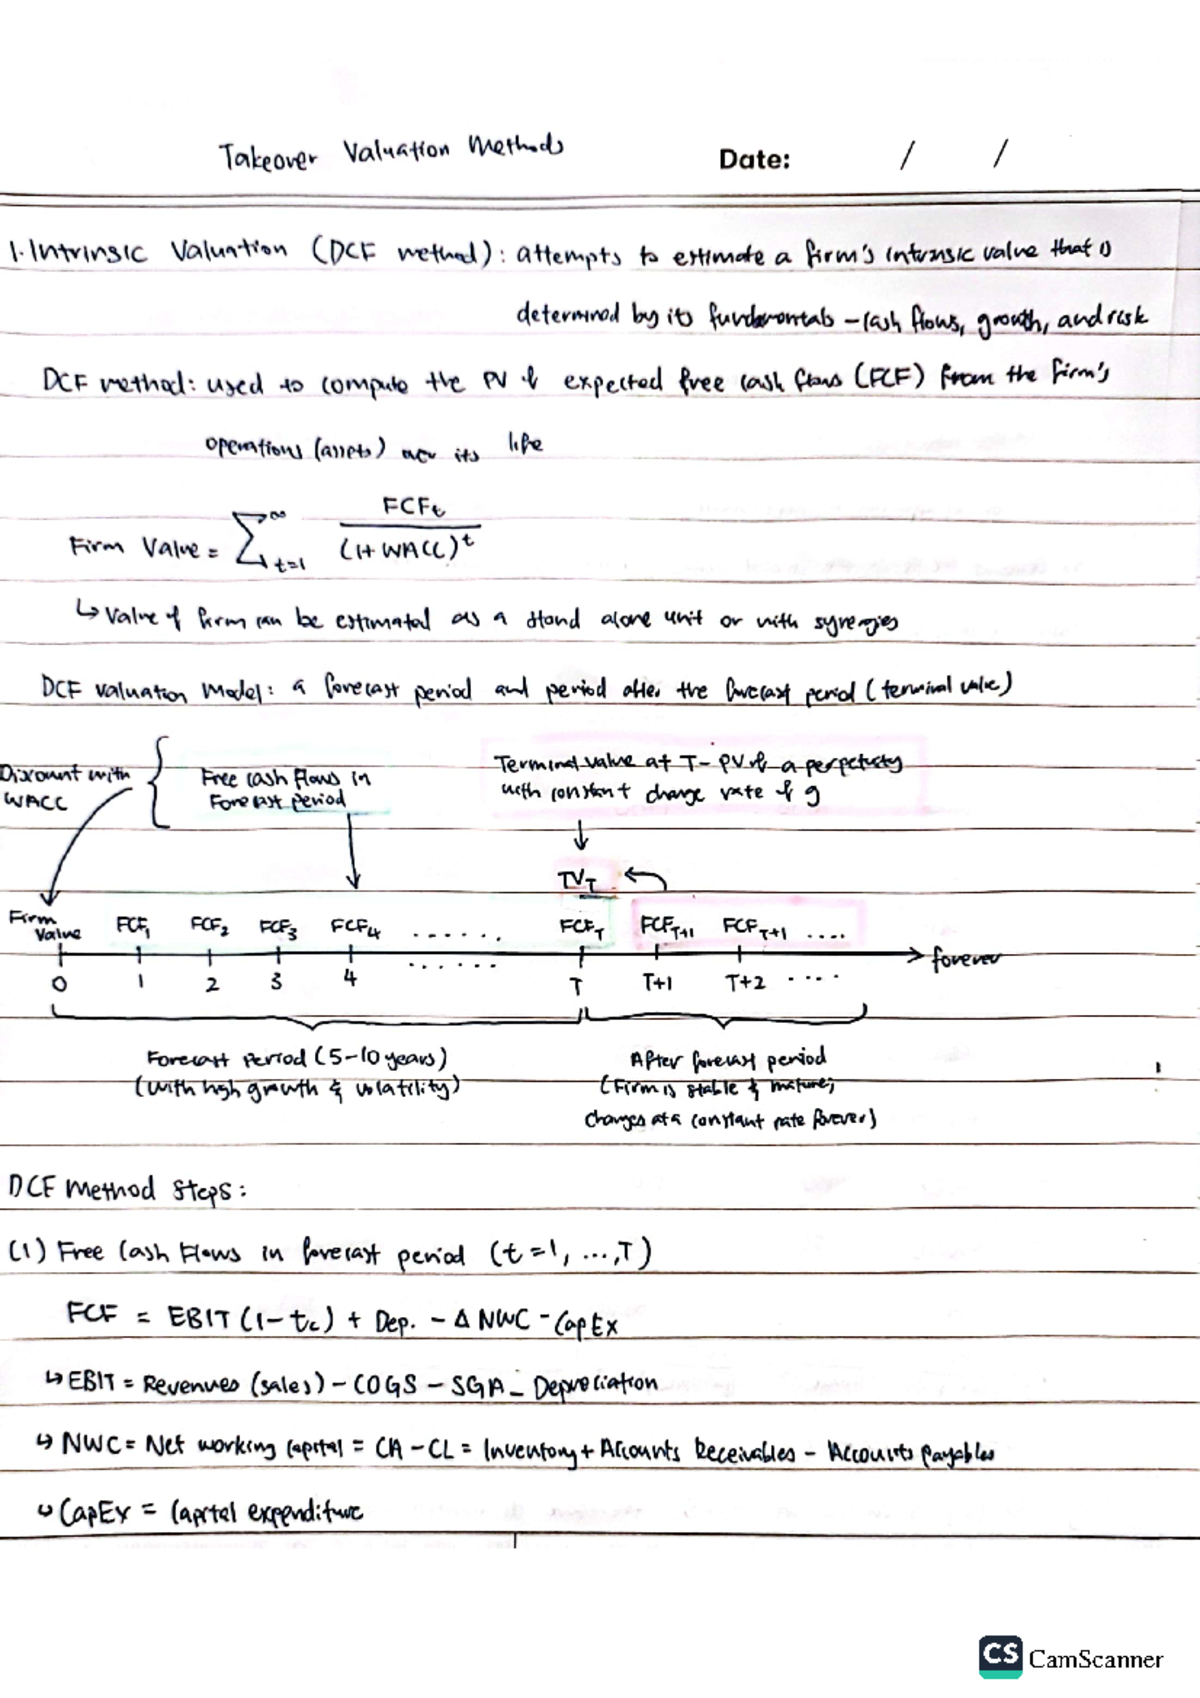 Takeover Valuation Methods
Date: / /
1. Intrinsic Valuation (DCF method): attempts to estimate a firm's intrinsic value that is
determined by its fundamentals – cash flows, growth, and risk
DCF method: used to compute the PV of expected free cash flows (FCF) from the firm's
operations (assets) over its life
Firm Value = ∑ t=1 ∞ FCFt / (1+ WACC)^t
↳ Value of firm can be estimated as a stand alone unit or with synergies
DCF Valuation Model: a forecast period and period after the forecast period (terminal value)
Discount with WACC
Free cash flows in
Forecast period
Terminal value at T – PV of a perpetuity
with constant change rate of g
TV_T
Firm Value FCF₁ FCF₂ FCF₃ FCF₄ ....... FCF_T FCF_T+1 FCF_T+1 ....
0 1 2 3 4 ....... T T+1 T+2 .... forever
Forecast Period (5–10 years)
(with high growth & volatility)
After forecast period
(Firm is stable & mature;
changes at a constant rate forever)
DCF Method Steps:
(1) Free Cash Flows in forecast period (t=1, ...,T)
FCF = EBIT (1– tc) + Dep. – Δ NWC – CapEx
↳ EBIT = Revenues (sales) – COGS – SGA – Depreciation
↳ NWC = Net working capital = CA – CL = Inventory + Accounts Receivables – Accounts payables
↳ CapEx = Capital expenditure
CS CamScanner